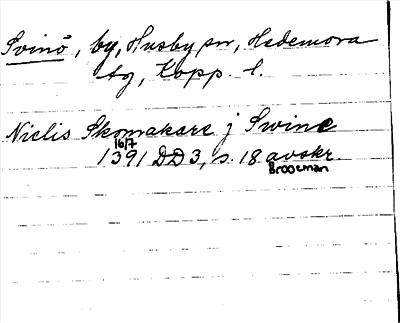 Svinö, by, Husby sn, Hedemora
tg, Kopp. l.
Niclis Skomakare j Swine
16/7
1391 DD3, s. 18 avskr.
Brooman